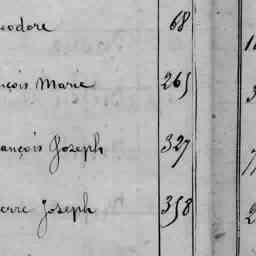 eodore 68
nçois Marie 265
rançois Joseph 327
erre Joseph 358